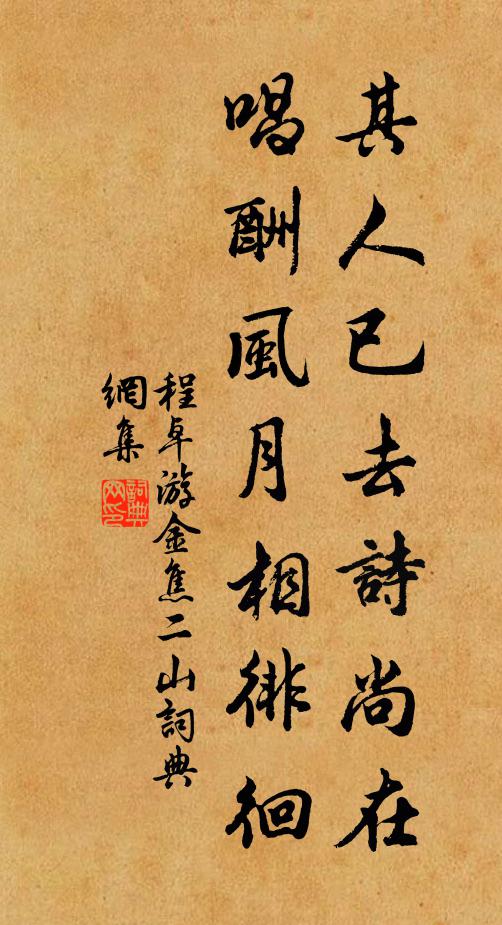 其人已去詩尚在
唱酬風月相徘徊
程卓游金焦二山詞典
網集
詞典
網印